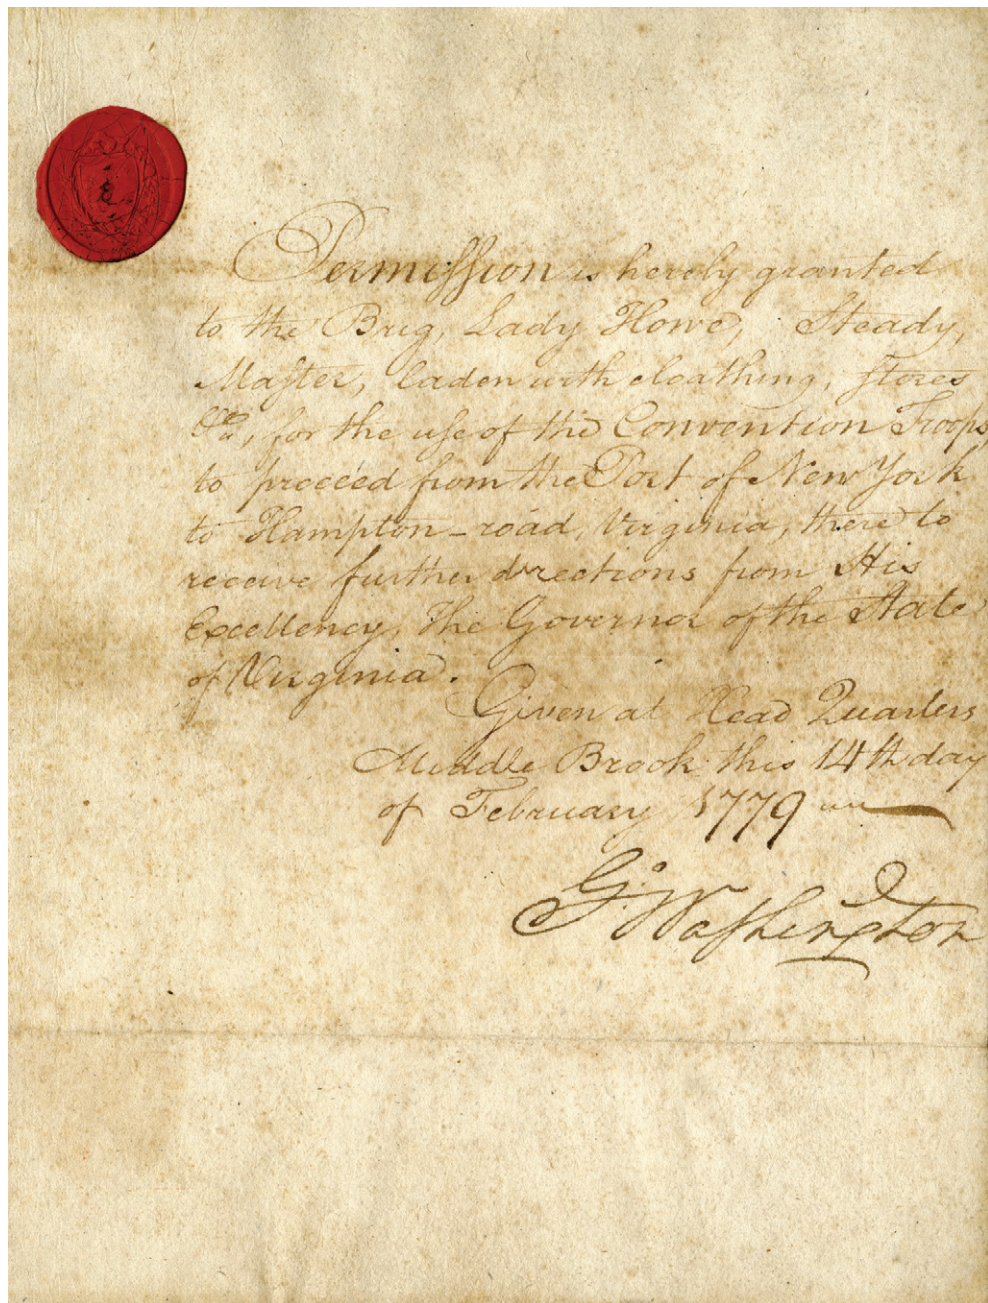 Permission is hereby granted
to the Brig, Lady Howe, Steady,
Master, laden with cloathing, stores
&ca, for the use of the Convention Troops,
to proceed from the Port of New York
to Hampton-road, Virginia, there to
receive further directions from His
Excellency, The Governor of the State
of Virginia.
Given at Head Quarters
Middle Brook this 14th day
of February 1779
G:Washington